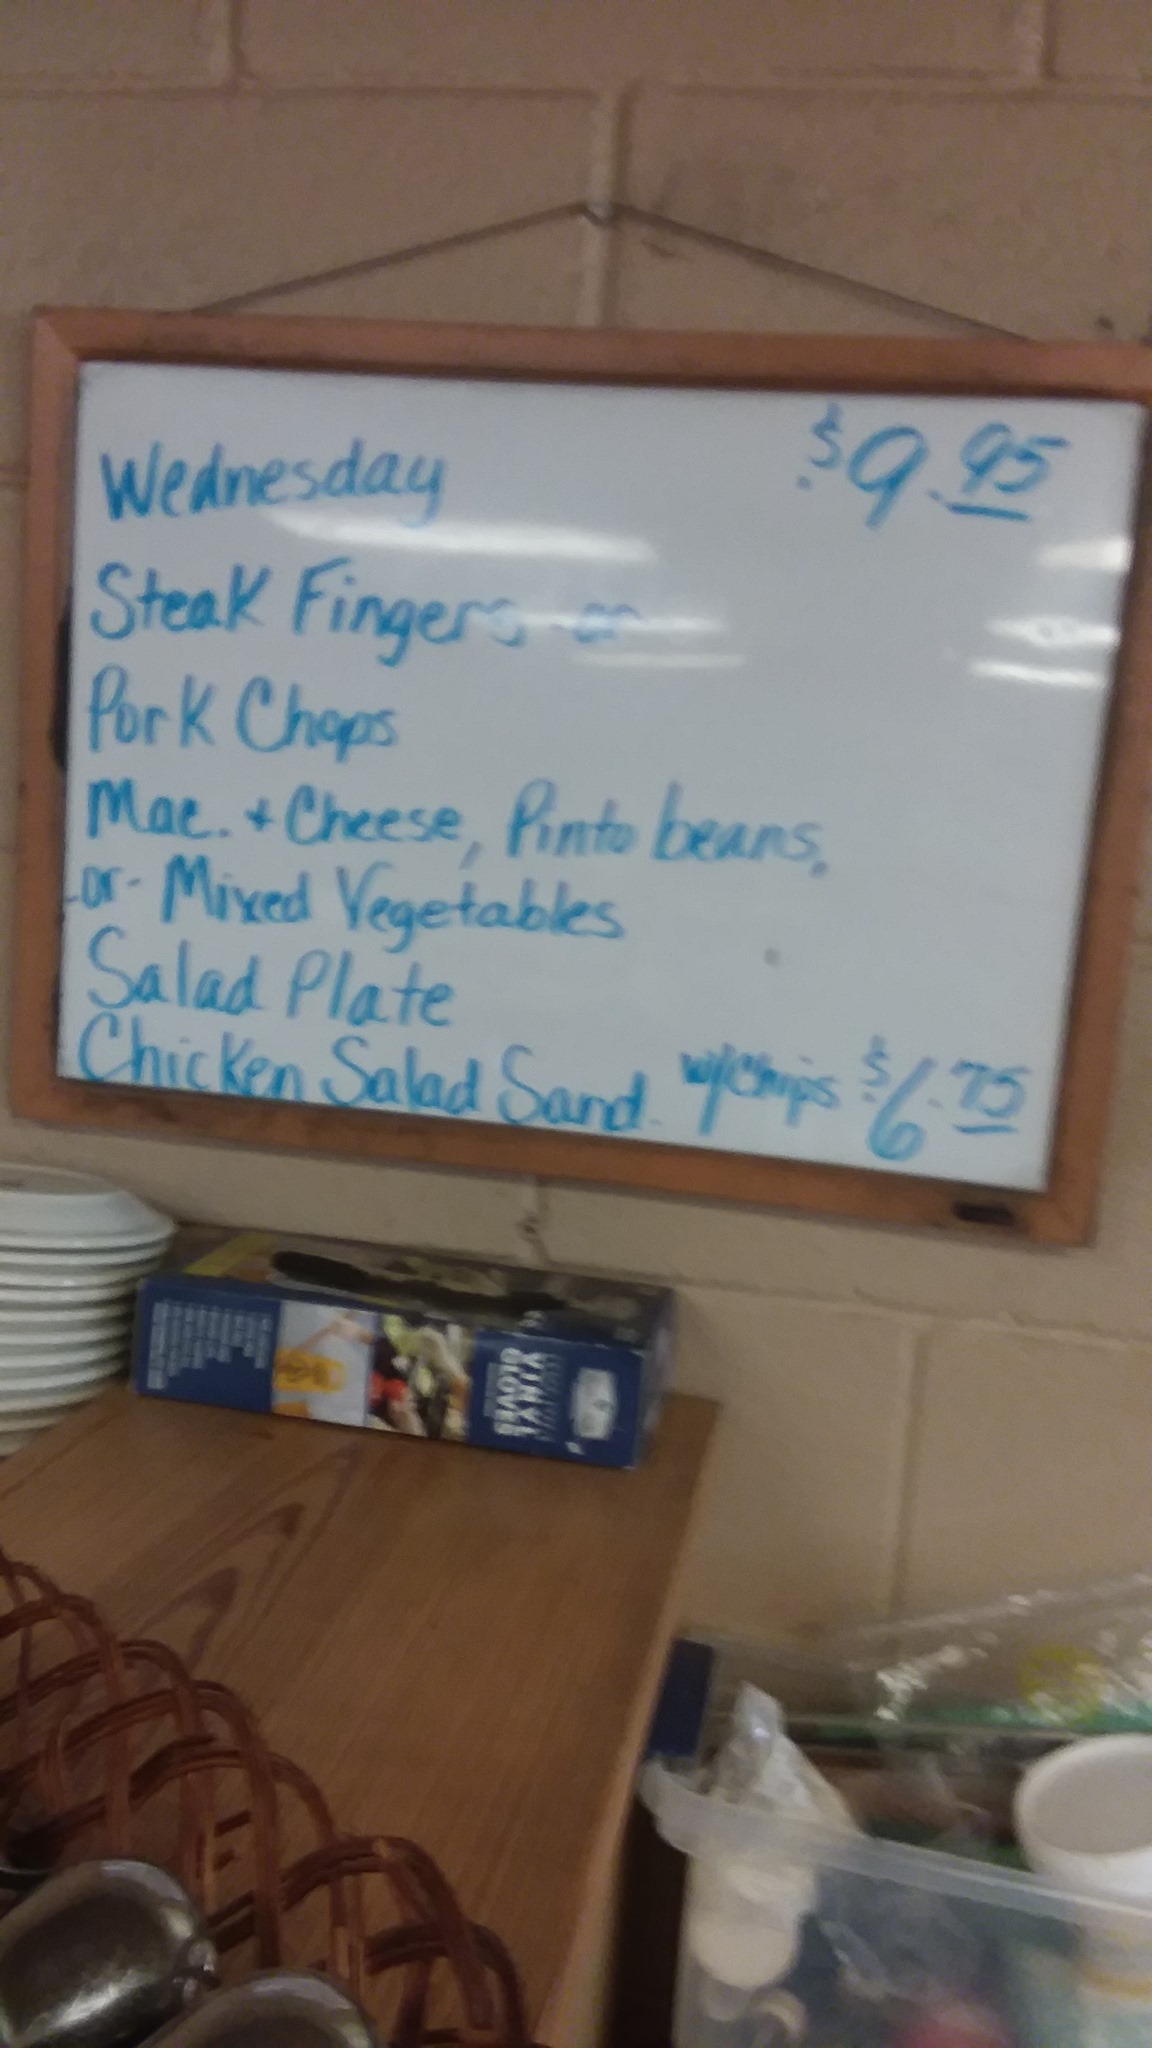 Wednesday $9.95
Steak Fingers or
Pork Chops
Mac. + Cheese, Pinto beans,
-or- Mixed Vegetables
Salad Plate
Chicken Salad Sand. w/Chips $6.75
VINYL
GLOVES